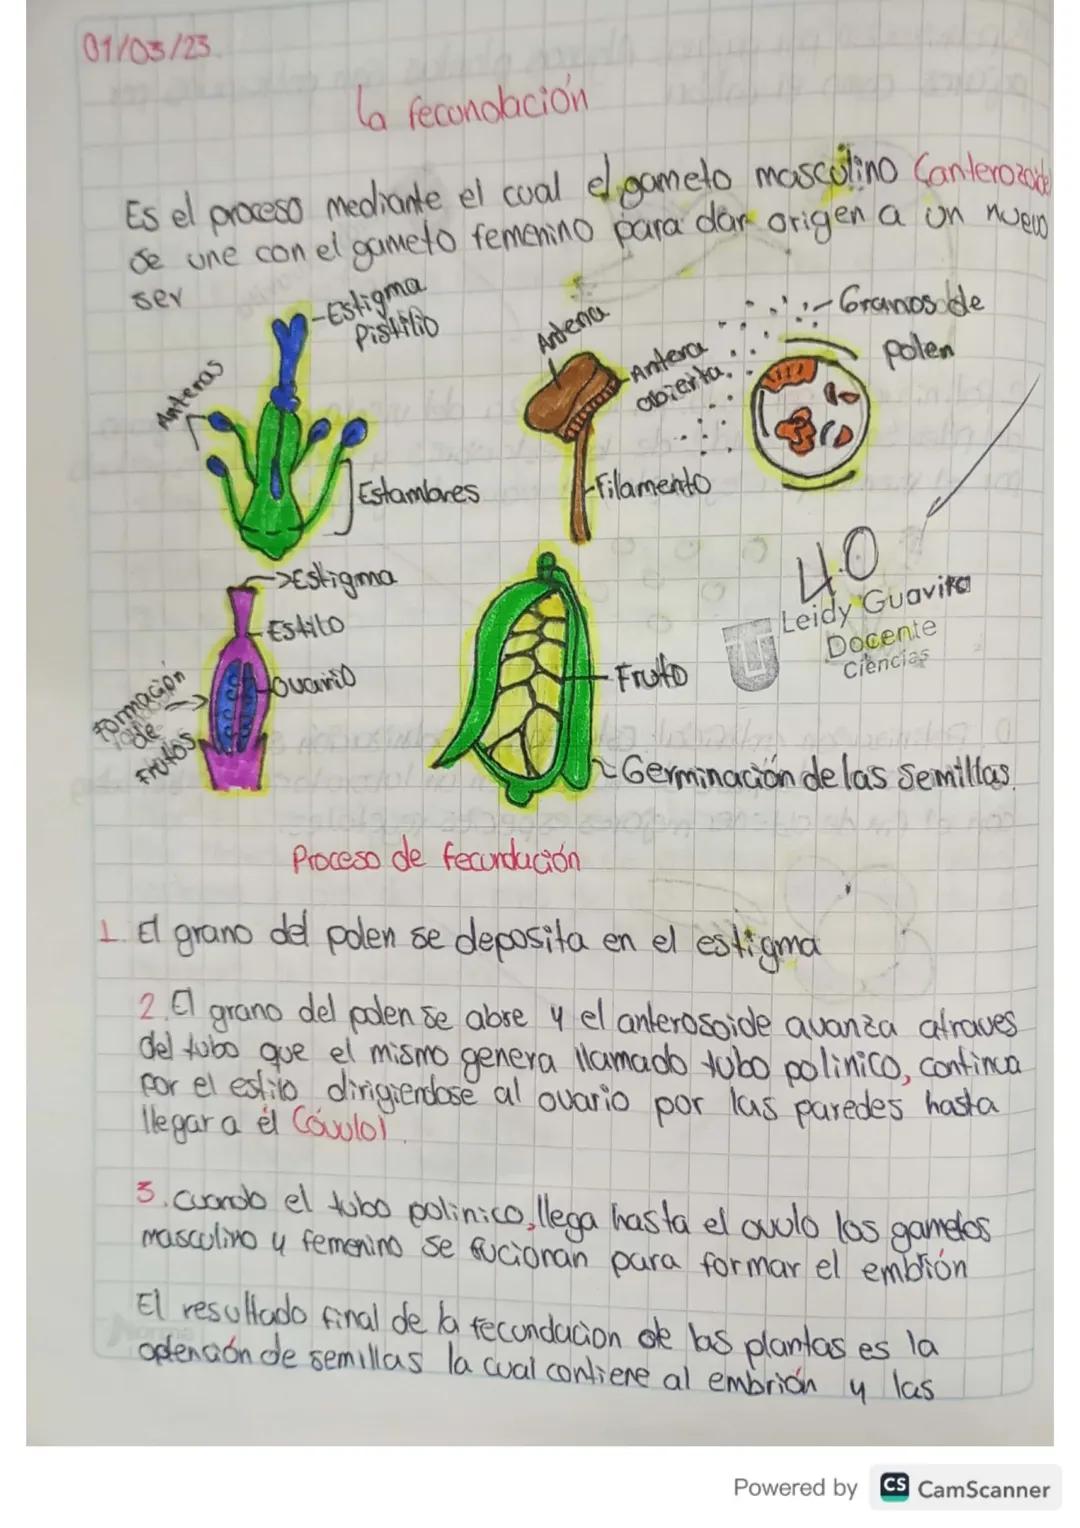 01/03/23.
La fecundación
Es el proceso mediante el cual el gameto masculino (anterozoide)
se une con el gameto femenino para dar origen a un nuevo
ser
-Estigma
Pistilio
Anteras
Estambres
Antena
-Antera
abierta.
-Granos de
polen
-Filamento
->Estigma
-Estilo
-Ovario
Formación
de
Frutos
-Fruto
Germinación de las semillas.
4.0
Leidy Guavita
Docente
Ciencias
Proceso de fecundación
1. El grano del polen se deposita en el estigma
2. El grano del polen se abre y el anterosoide avanza atraves
del tubo que el mismo genera llamado tubo polinico, continua
por el estilo dirigiendose al ovario por las paredes hasta
llegar a él (óvulo).
3. cuando el tubo polinico, llega hasta el ovulo los gametos
masculino y femenino se fucionan para formar el embrión
El resultado final de la fecundación de las plantas es la
optención de semillas la cual contiene al embrión y las
Powered by CS CamScanner